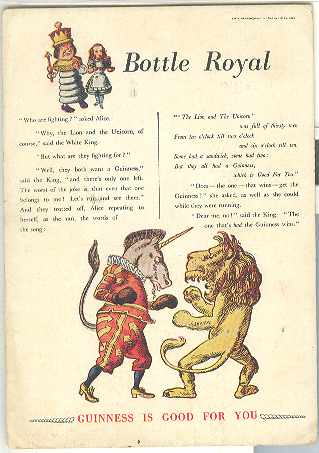 Bottle Royal
"Who are fighting?" asked Alice.
"Why, the Lion and the Unicorn, of
course," said the White King.
"But what are they fighting for?"
"Well, they both want a Guinness,"
said the King, "and there's only one left.
The worst of the joke is that even that one
belongs to me! Let's run and see them."
And they trotted off, Alice repeating to
herself, as she ran, the words of
the song:
"' The Lion and The Unicorn
was full of thirsty men
From ten o'clock till two o'clock
and six o'clock till ten.
Some had a sandwich, some had two:
But they all had a Guinness,
which is Good For You."
"Does—the one—that wins—get the
Guinness?" she asked, as well as she could
while they were running.
"Dear me, no!" said the King. "The
one that's had the Guinness wins."
GUINNESS IS GOOD FOR YOU